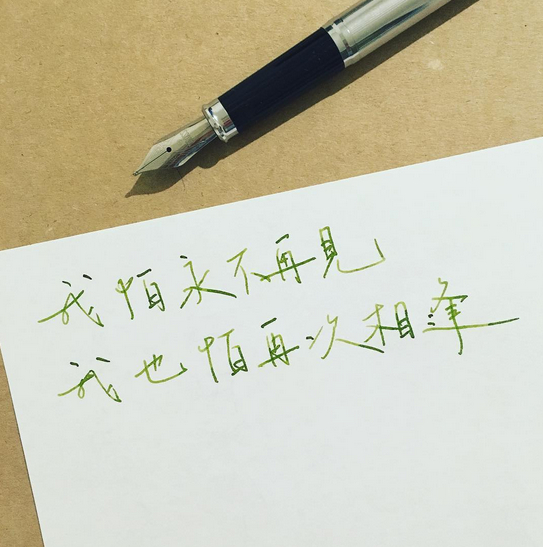 我怕永不再見
我也怕再次相逢